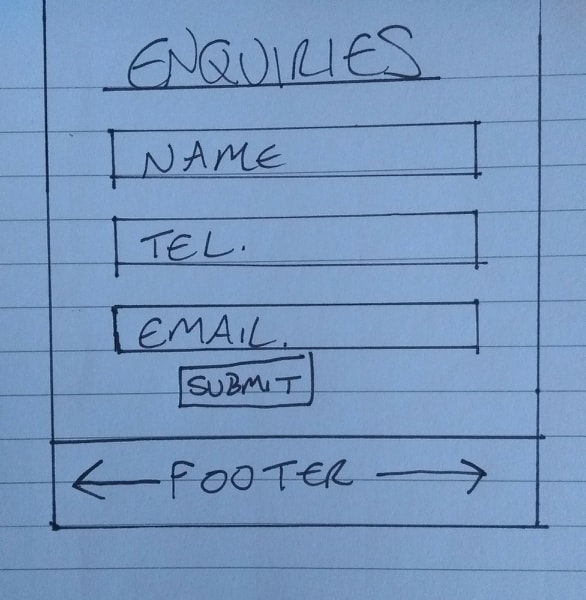 ENQUIRIES
NAME
TEL.
EMAIL.
SUBMIT
FOOTER